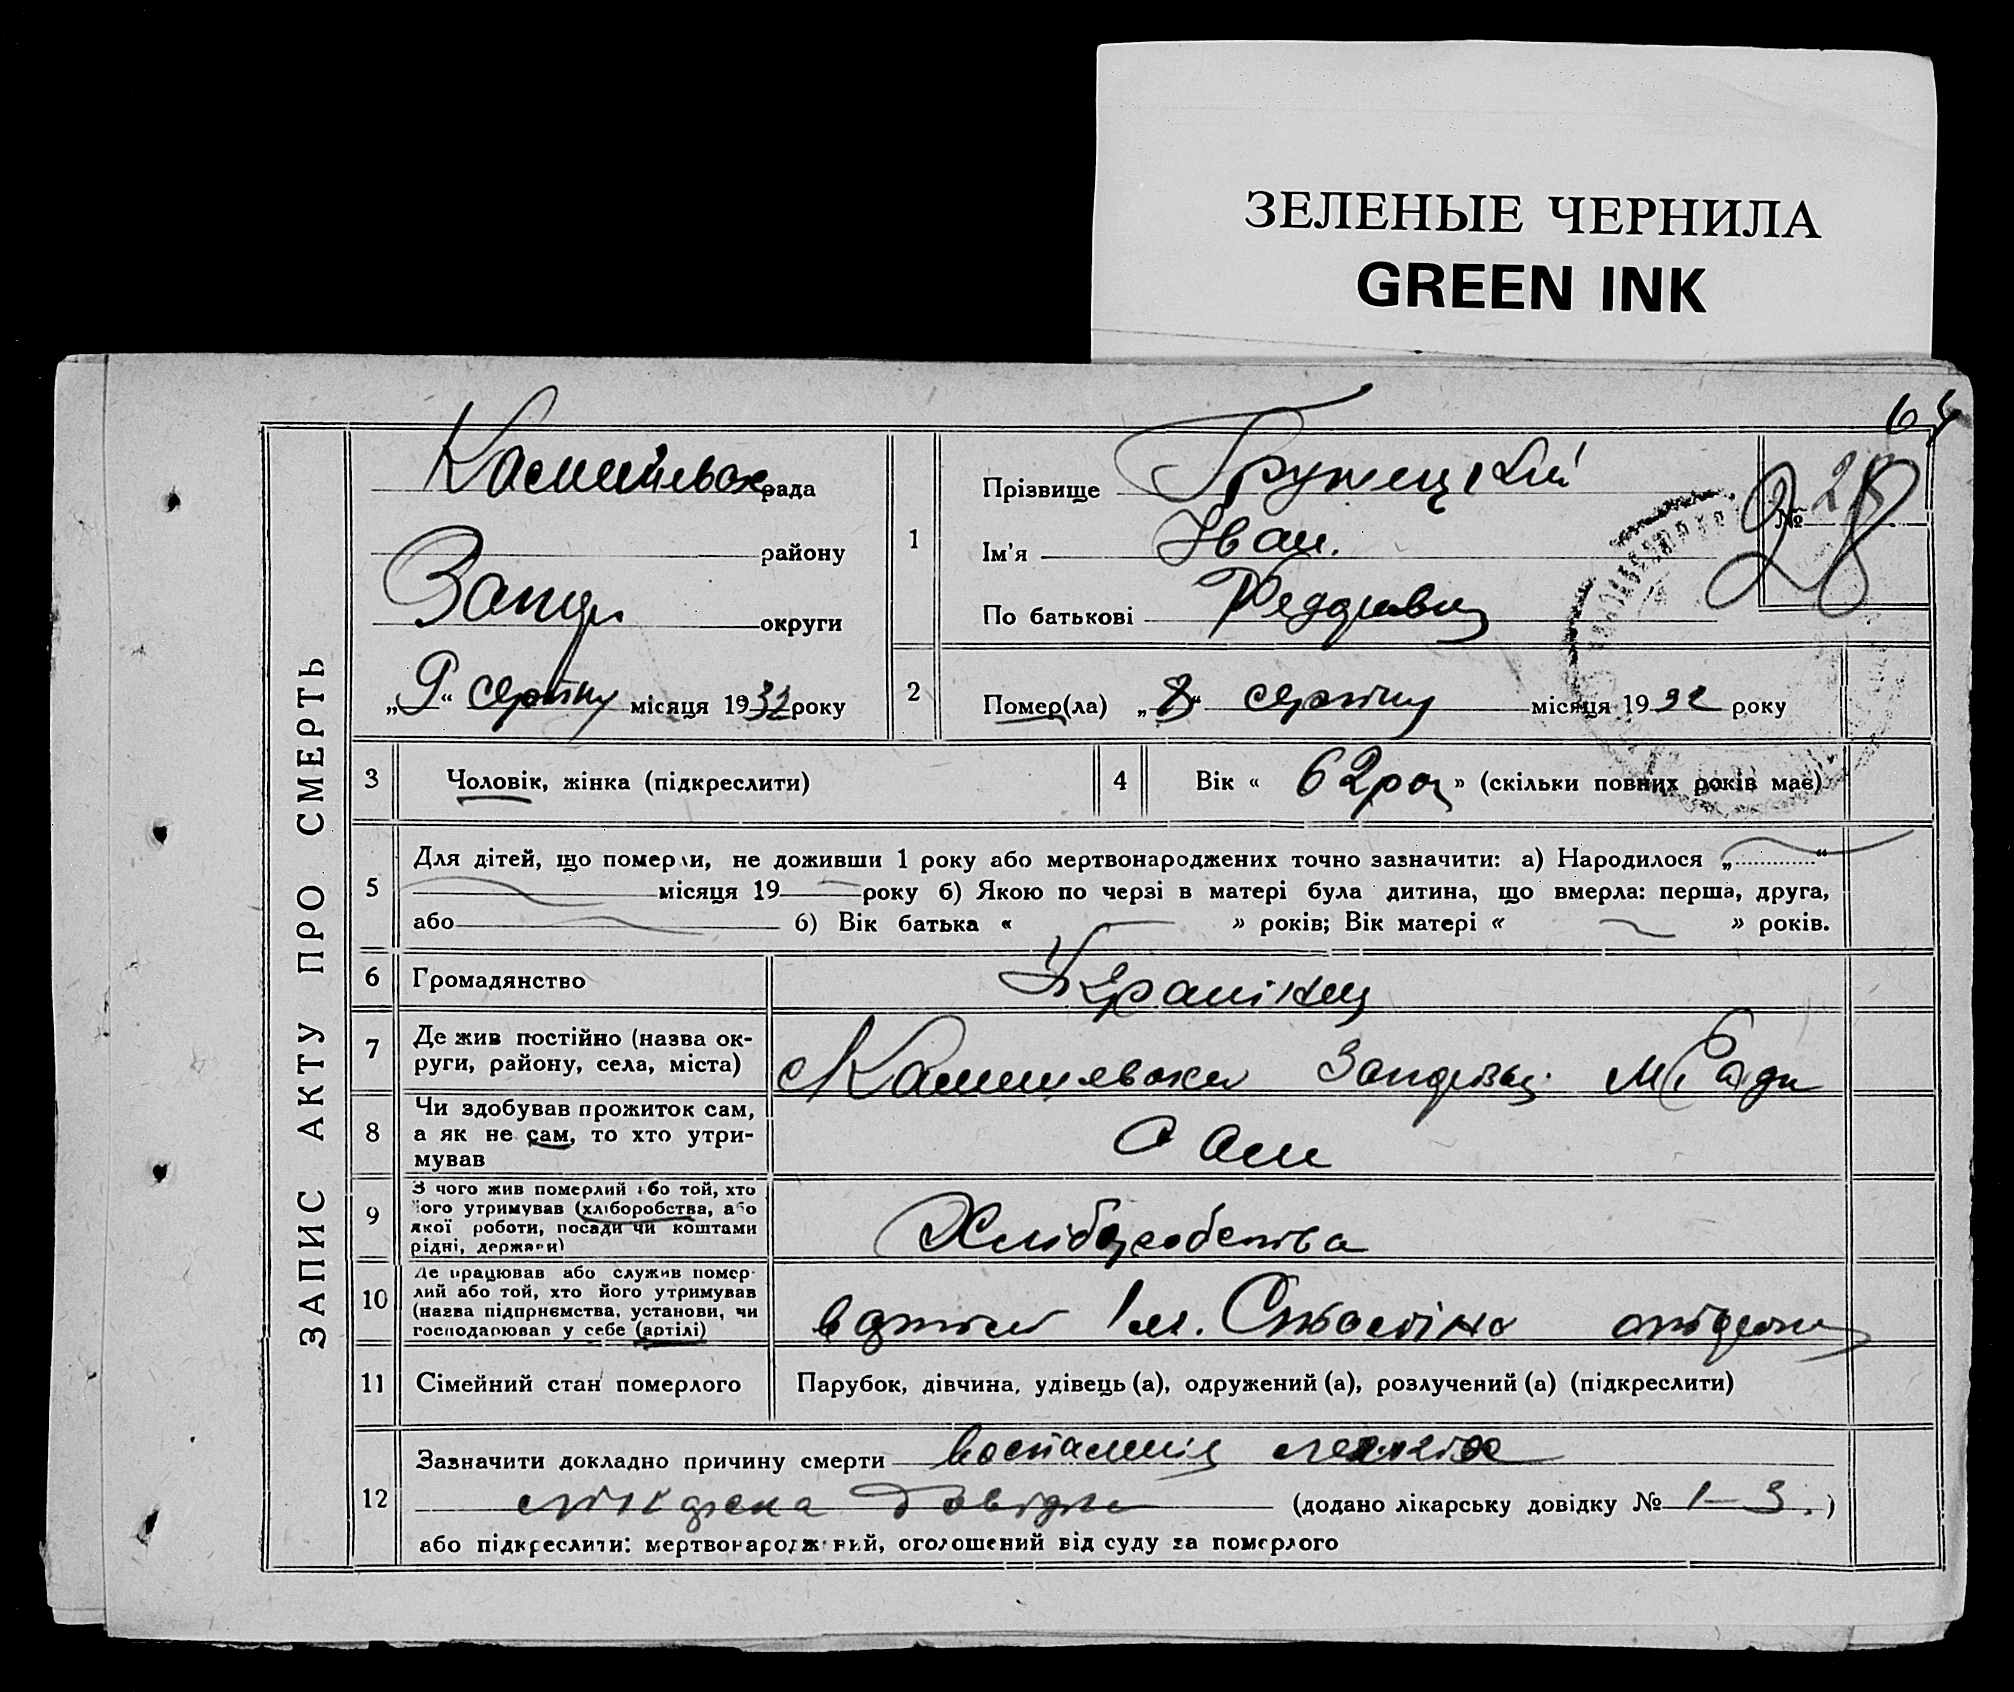 ЗЕЛЕНЫЕ ЧЕРНИЛА
GREEN INK
64
ЗАПИС АКТУ ПРО СМЕРТЬ
рада
району
округи
„9“ серпня місяця 1932 року
1
Прізвище Гружецкий
Ім'я Іван.
По батькові
№ 28
28
2
Помер(ла) „8“ серпня місяця 1932 року
3
Чоловік, жінка (підкреслити)
4
Вік « 62 » (скільки повних років має)
5
Для дітей, що померли, не доживши 1 року або мертвонароджених точно зазначити: а) Народилося „ “
місяця 19 року б) Якою по черзі в матері була дитина, що вмерла: перша, друга,
або б) Вік батька « » років; Вік матері « » років.
6
Громадянство
7
Де жив постійно (назва ок-
руги, району, села, міста)
8
Чи здобував прожиток сам,
а як не сам, то хто утри-
мував
Сам
9
З чого жив померлий або той, хто
його утримував (хліборобства, або
якої роботи, посади чи коштами
рідні, держави)
Хліборобства
10
Де працював або служив помер-
лий або той, хто його утримував
(назва підприємства, установи, чи
господарював у себе (артілі)
в артілі Ім. Сталіна
11
Сімейний стан померлого
Парубок, дівчина, удівець (а), одружений (а), розлучений (а) (підкреслити)
12
Зазначити докладно причину смерти воспаления легких
(додано лікарську довідку № 1-3.)
або підкреслити: мертвонароджений, оголошений від суду за померлого